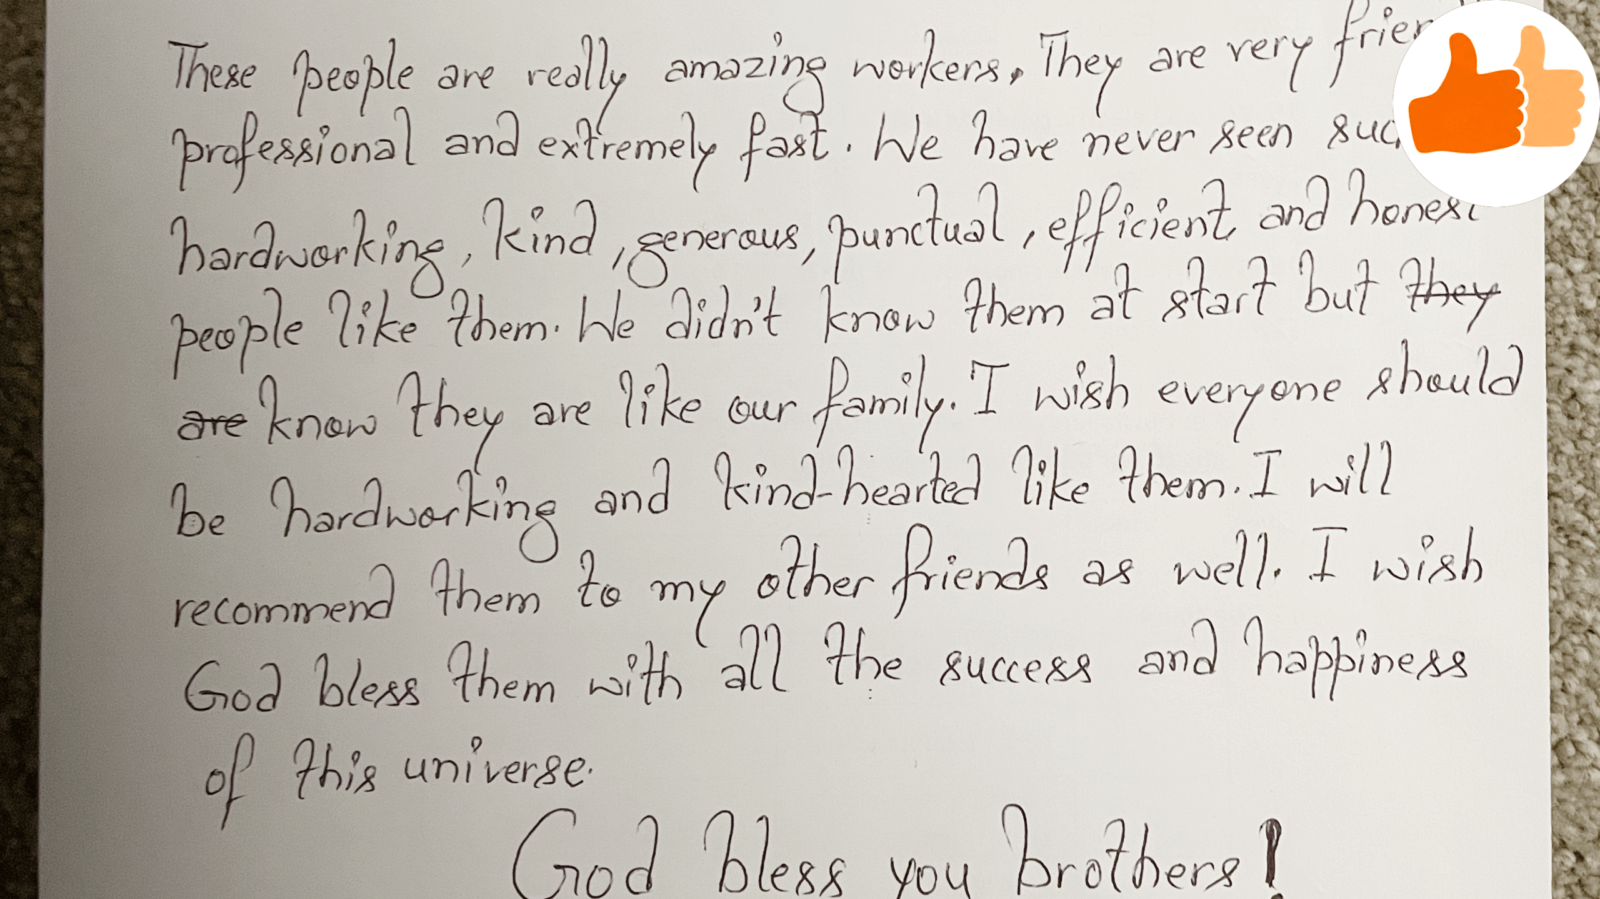 These people are really amazing workers. They are very
professional and extremely fast. We have never seen
hardworking, kind, generous, punctual, efficient and honest
people like them. We didn't know them at start but they
are know they are like our family. I wish everyone should
be hardworking and kind-hearted like them. I will
recommend them to my other friends as well. I wish
God bless them with all the success and happiness
of this universe.
God bless you brothers!